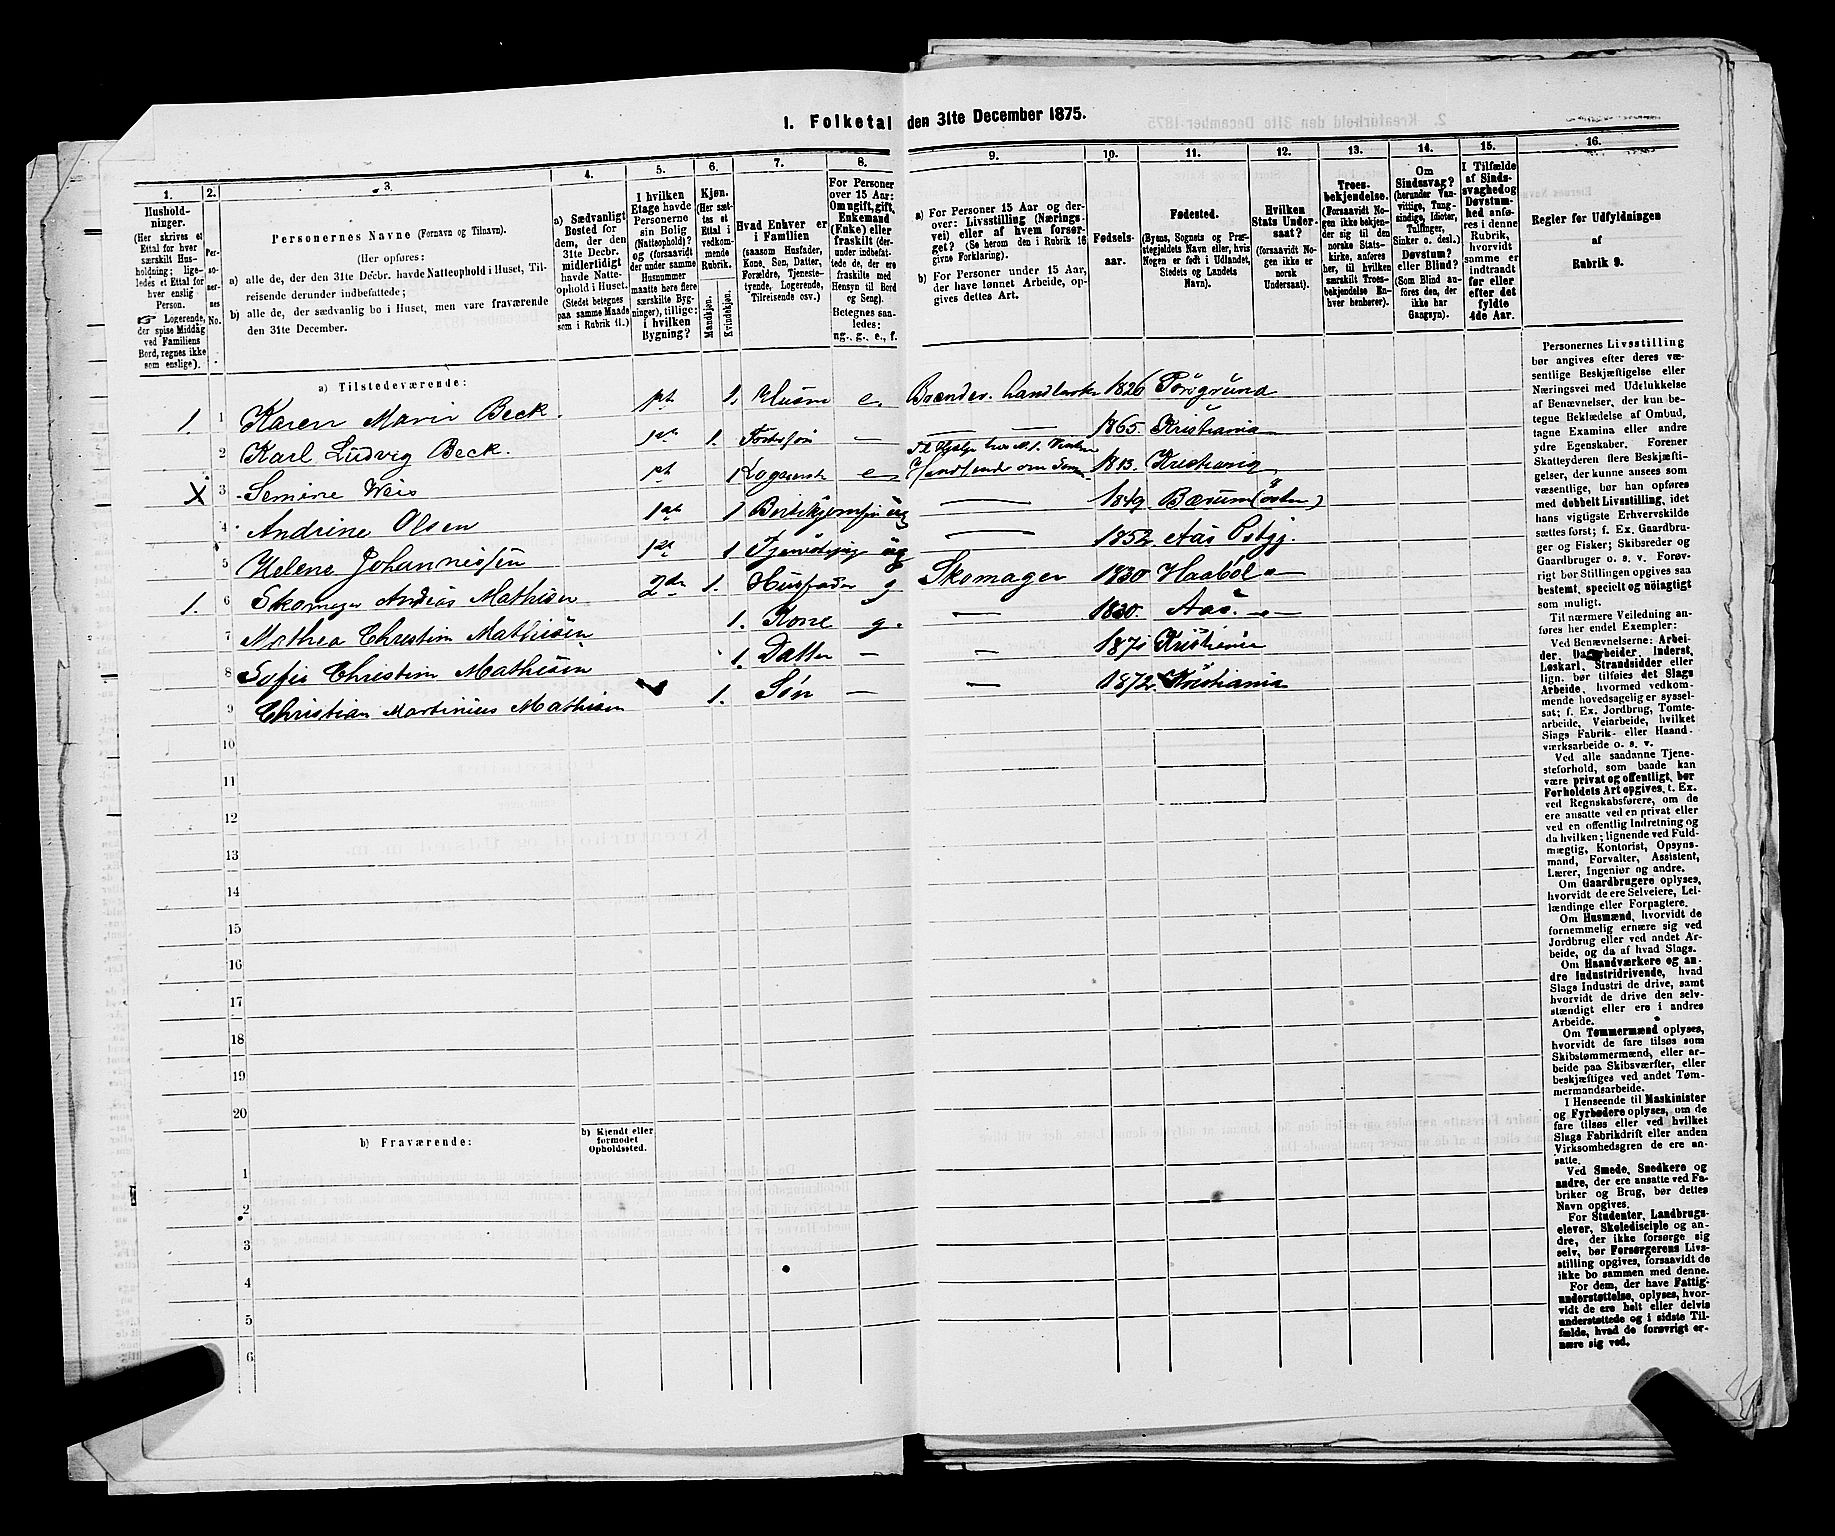 I. Folketal den 31te December 1875.
1. 2. 3. 4. 5. 6. 7. 8. 9. 10. 11. 12. 13. 14. 15. 16.
Husholdninger.
(Her skrives et
Ettal for hver
særskilt Husholdning;
ligeledes et Ettal for
hver enslig
Person.
Logerende,
der spise Middag
ved Familiens
Bord, regnes ikke
som enslige).
Personernes No.
Personernes Navne (Fornavn og Tilnavn).
(Her opføres:
a) alle de, der den 31te Decbr. havde Natteophold i Huset, Tilreisende derunder indbefattede;
b) alle de, der sædvanlig bo i Huset, men vare fraværende
den 31te December.
a) Sædvanligt
Bosted for
dem, der den
31te Decbr.
midlertidigt
havde Natteophold i Huset.
(Stedet betegnes
paa samme Maade
som i Rubrik 11.)
I hvilken
Etage havde
Personerne
sin Bolig
(Natteophold)?
og (forsaavidt
der under samme
Husnummer
maatte høre flere
særskilte Bygninger), tillige:
i hvilken
Bygning?
Kjøn.
(Her sættes et
Ettal i
vedkommende
Rubrik.
Mandkjøn.
Kvindekjøn.
Hvad Enhver er
i Familien
(saasom Husfader,
Kone, Søn, Datter,
Forældre, Tjenestetyende, Logerende,
Tilreisende osv.)
For Personer
over 15 Aar:
Om ugift, gift,
Enkemand
(Enke) eller
fraskilt (derunder indbefattede de, der ere
fraskilte med
Hensyn til Bord
og Seng).
Betegnes saaledes:
ug., g., e., f.
a) For Personer 15 Aar og derover: Livsstilling (Næringsvei) eller af hvem forsørget? (Se herom den i Rubrik 16
givne Forklaring).
b) For Personer under 15 Aar,
der have lønnet Arbeide, opgives dettes Art.
Fødselsaar.
Fødested.
(Byens, Sognets og Præstegjeldets Navn eller, hvis
Nogen er født i Udlandet,
Stedets og Landets
Navn).
Hvilken
Stats Undersaat?
(forsaavidt Nogen ikke er
norsk
Undersaat).
Troesbekjendelse.
(Forsaavidt Nogen ikke bekjender sig til den
norske Statskirke, anføres
her, til hvilken
særskilt Troesbekjendelse Enhver henhører).
Om
Sindssvag?
(herunder Vanvittige, Tungsindige, Idioter,
Tullinger,
Sinker o. desl.)
Døvstum?
eller Blind?
(Som Blind anføres den, der
ikke har
Gangsyn).
I Tilfælde
af Sindssvaghed og
Døvstumhed anføres i denne
Rubrik,
hvorvidt
samme er
indtraadt
før eller
efter det
fyldte
4de Aar.
Regler for Udfyldningen
af
Rubrik 9.
a) Tilstedeværende:
1. 1 Karen Marie Beck. 1st 1. Husm e. Brændev. Landhandler 1826 Porsgrund
2 Karl Ludvig Beck. 1st 1. — 1865. Kristiania
X 3 Semine Weis 1st 1 Logerende e 1813. Kristiania
4 Andrine Olsen 1st 1 ug — 1849 Bærum
5 Helene Johannessen 1st 1 ug — 1852 Aas
1. 6 Skomager Andreas Mathisen 2den 1. Husfader g Skomager 1830 Haabøl
7 Mathea Christine Mathisen 1. Kone g. — 1830. Aas
8 Sofie Christine Mathisen 1. Datter — — 1871 Kristiania
9 Christian Martinius Mathisen 1. Søn — — 1872 Kristiania
10
11
12
13
14
15
16
17
18
19
20
b) Fraværende:
b) Kjendt eller
formodet
Opholdssted.
1
2
3
4
5
6
Personernes Livsstilling
bør angives efter deres væsentlige Beskjæftigelse eller
Næringsvei med Udelukkelse
af Benævnelser, der kun betegne Beklædelse af Ombud,
tagne Examina eller andre
ydre Egenskaber. Forener
Skatteyderen flere Beskjæftigelser, der kunne ansees som
væsentlige, bør han opføres
med dobbelt Livsstilling, idet
hans vigtigste Erhvervskilde
sættes først; f. Ex. Gaardbruger og Fisker; Skibsreder og
Gaardbruger o. s. v. Forøvrigt bør Stillingen opgives saa
bestemt, specielt og nøiagtigt
som muligt.
Til nærmere Veiledning anføres her endel Exempler:
Ved Benævnelserne: Arbeider, Dagarbeider, Inderst,
Løskarl, Strandsidder eller
lign. bør tilføies det Slags
Arbeide, hvormed vedkommende hovedsagelig er sysselsat; f. Ex. Jordbrug, Tomtearbeide, Veiarbeide, hvilket
Slags Fabrik- eller Haandværksarbeide o. s. v.
Ved alle saadanne Tjenesteforhold, som baade kan
være privat og offentligt, bør
Forholdets Art opgives, t. Ex.
ved Regnskabsførere, om de
ere ansatte ved en privat eller
ved en offentlig Indretning og
da hvilken; lignende ved Fuldmægtig, Kontorist, Opsynsmand, Forvalter, Assistent,
Lærer, Ingeniør og andre.
Om Gaardbrugere oplyses,
hvorvidt de ere Selveiere, Leilændinge eller Forpagtere.
Om Husmænd, hvorvidt de
fornemmelig ernære sig ved
Jordbrug eller ved andet Arbeide, og da af hvad Slags.
Om Haandværkere og andre Industridrivende, hvad
Slags Industri de drive, samt
hvorvidt de drive den selvstændigt eller ere i andres
Arbeide.
Om Tømmermænd oplyses,
hvorvidt de fare tilsøs som
Skibstømmermænd, eller arbeide paa Skibsværfter, eller
beskjæftiges ved andet Tømmermandsarbeide.
I Henseende til Maskinister
og Fyrbødere oplyses, om de
fare tilsøs eller ved hvilket
Slags Fabrikdrift eller anden
Virksomhedsgren de ere ansatte.
Ved Smede, Snedkere og
andre, der ere ansatte ved Fabriker og Brug, bør dettes
Navn opgives.
For Studenter, Landbrugselever, Skoledisciple og andre, der ikke forsørge sig
selv, bør Forsørgerens Livsstilling opgives, forsaavidt de
ikke bo sammen med denne.
For dem, der have Fattigunderstøttelse, oplyses, hvorvidt de ere helt eller delvis
understøttede og i sidste Tilfælde, hvad de forøvrigt ernære sig ved.